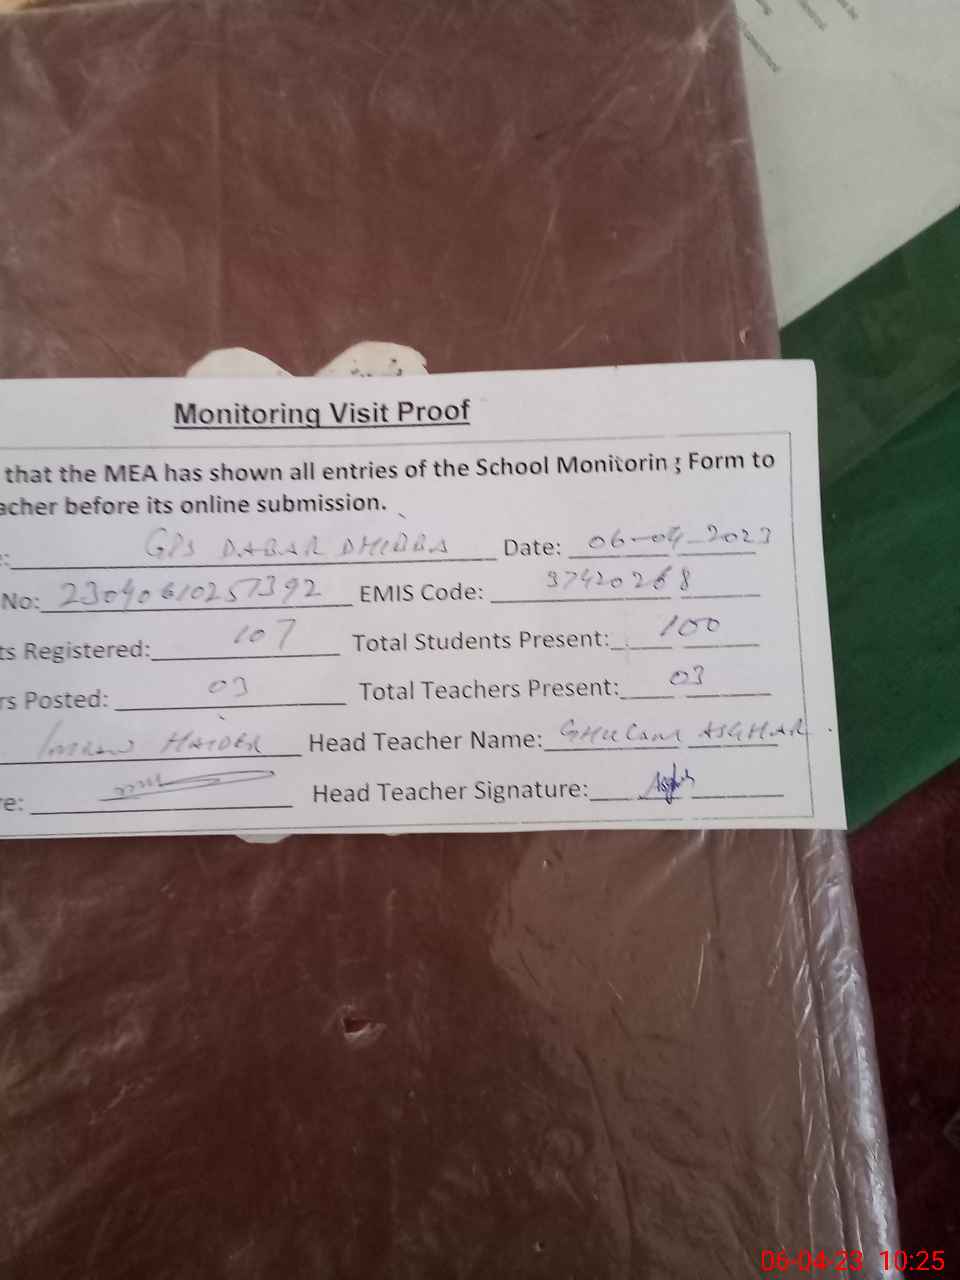 Monitoring Visit Proof
that the MEA has shown all entries of the School Monitoring Form to
acher before its online submission.
: GPS DABAR DHEDBA Date: 06-04-2023
No: 23040610257392 EMIS Code: 37420268
ts Registered: 107 Total Students Present: 100
rs Posted: 03 Total Teachers Present: 03
Imran HAIDER Head Teacher Name: GHULAM ASGHAR
re: Head Teacher Signature: Asghar
06-04-23 10:25